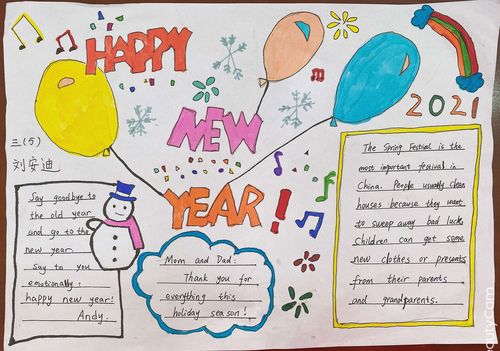 HAPPY
NEW
YEAR!
2021
三(5)
刘安迪
Say goodbye to
the old year
and go to the
new year.
Say to you
emotionally:
happy new year!
Andy.
Mom and Dad:
Thank you for
everything this
holiday season!
The Spring Festival is the
most important festival in
China. People usually clean
houses because they want
to sweep away bad luck.
Children can get some
new clothes or presents
from their parents
and grandparents.